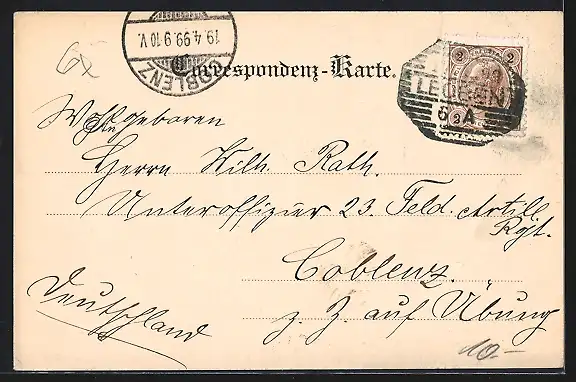 19.4.99.9-10V.
COBLENZ
Correspondenz-Karte.
2 2
99
LEOBEN
6 A
2
Wohlgeboren
Herrn Wilh. Rath.
Unteroffizier 23. Feld. Artill.
Rgt.
Coblenz.
Deutschland
z. Z. auf Übung
10.-